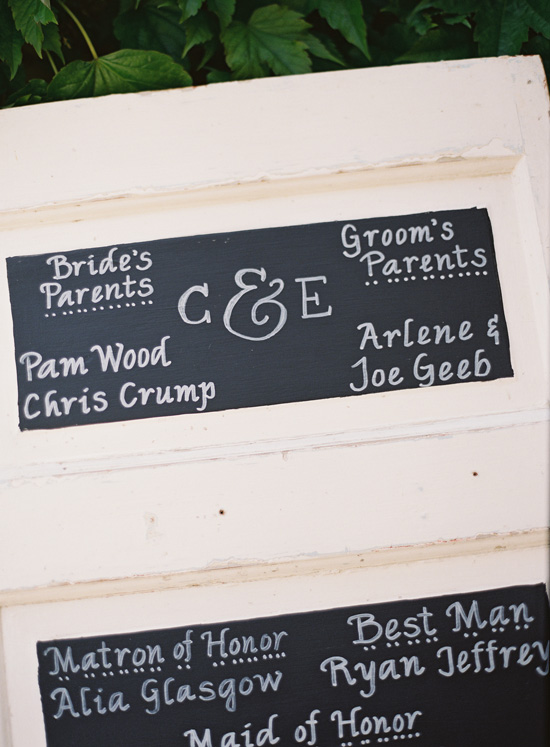 Bride's
Parents
Pam Wood
Chris Crump
C & E
Groom's
Parents
Arlene &
Joe Geeb
Matron of Honor
Alia Glasgow
Best Man
Ryan Jeffrey
Maid of Honor